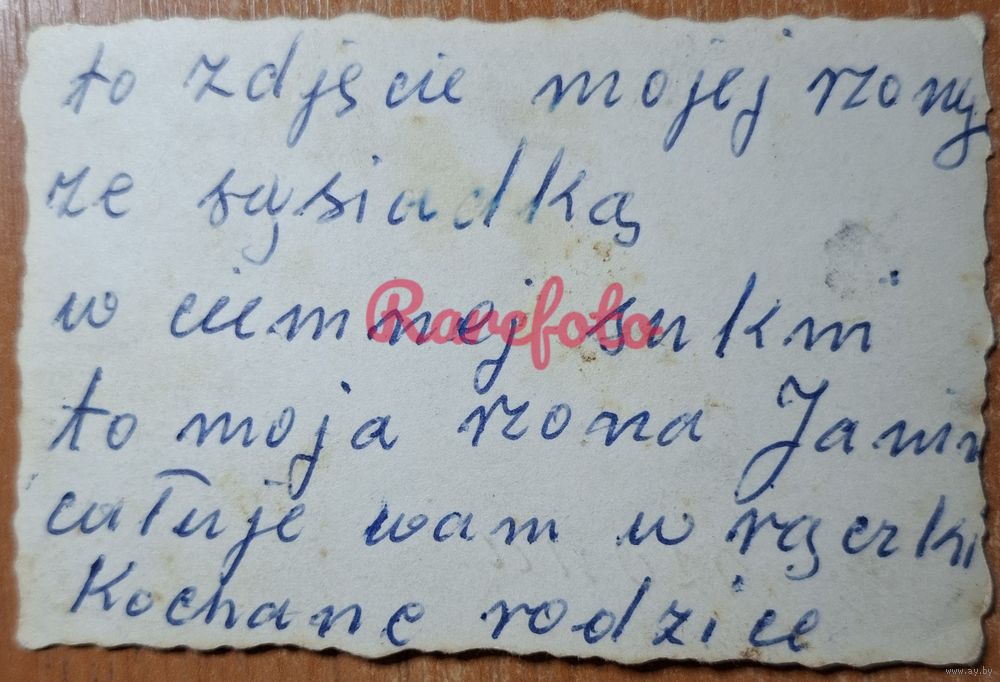 to zdjęcie mojej rzony
ze sąsiadką
w ciemnej sukni
to moja rzona Janin
całuje wam w rączki
Kochane rodzice
Rarefoto
www.ay.by